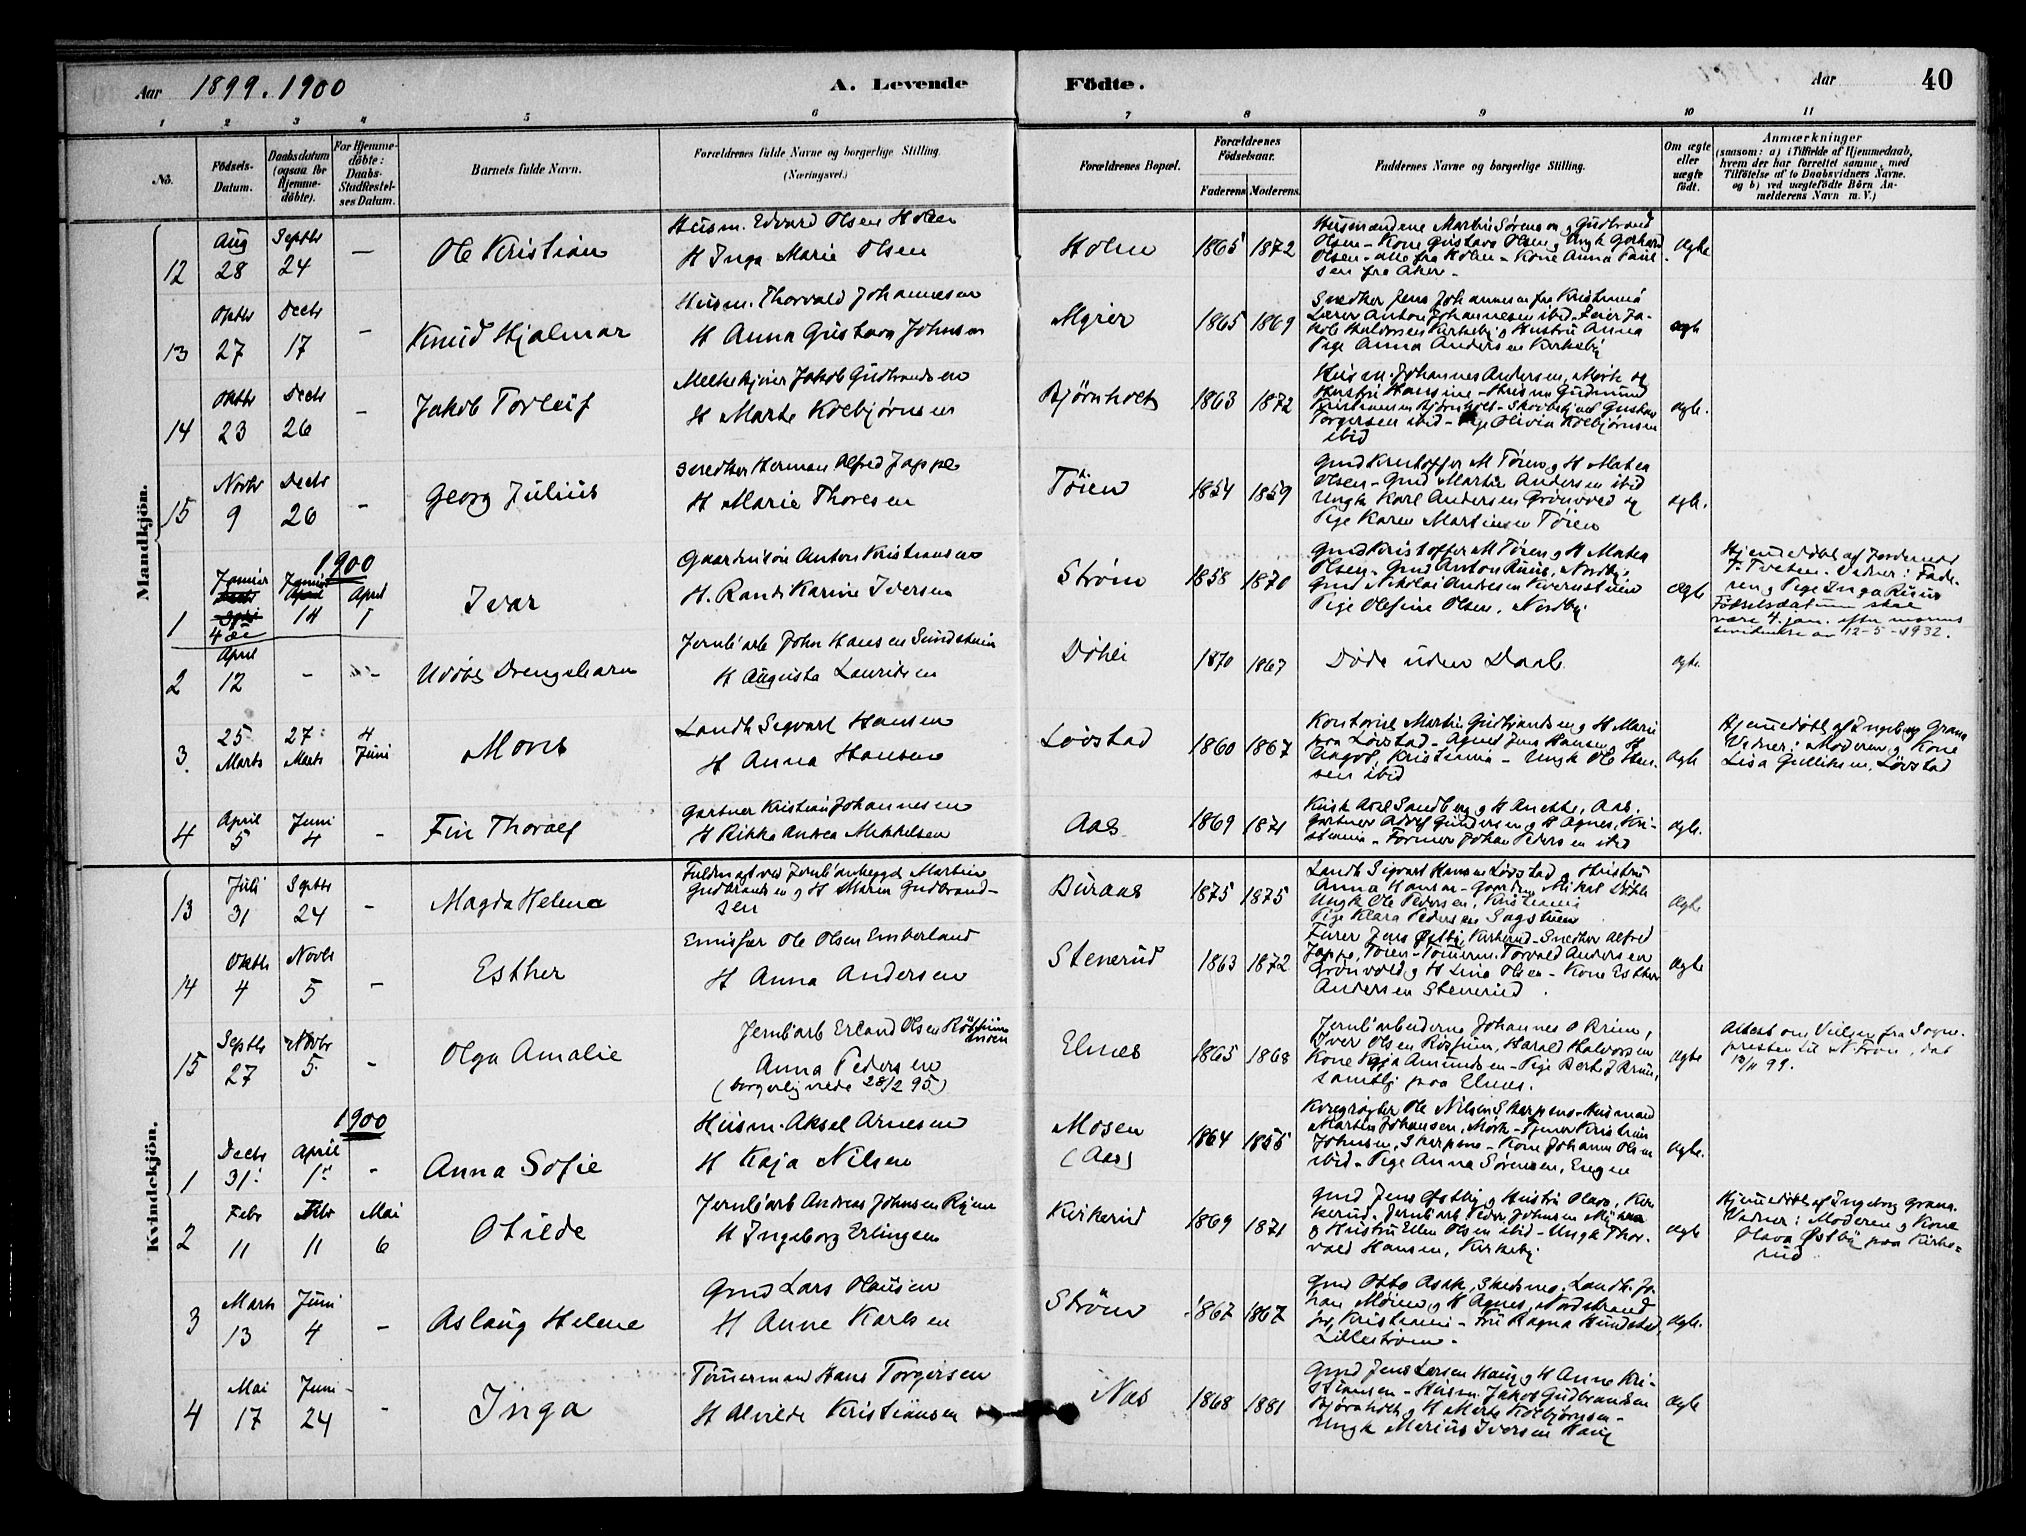 Aar 1899. 1900
A. Levende
Födte.
Aar
40
1 2 3 4 5 6 7 8 9 10 11
No.
Födsels-Datum.
Daabsdatum (ogsaa for Hjemmedöbte).
For Hjemmedöbte: Daabs-Stadfæstelses Datum.
Barnets fulde Navn.
Forældrenes fulde Navne og borgerlige Stilling.
(Næringsvei.)
Forældrenes Bopæl.
Forældrenes Födselsaar.
Faderens. Moderens.
Faddernes Navne og borgerlige Stilling.
Om ægte eller uægte födt.
Anmærkninger
(saasom: a) i Tilfælde af Hjemmedaab,
hvem der har forrettet samme, med
Tilföielse af to Daabsvidners Navne.
og b) ved uægtefödte Börn An-
melderens Navn m. V.)
Mandkjön.
12 Aug 28 Septbr 24 - Ole Kristian
Husm. Edvard Olsen Holm
H Inga Marie Olsen
Holm 1865 1872
Husmændene Martin Sørensen og Gudbrand
Olsen - Kone Gustava Olsen, Ungk Gerhard
Olsen - alle fra Holm - Kone Anna Paul
sen fra Aker -
ægte
13 Oktbr 27 Decbr 17 - Knud Hjalmar
Husm. Thorvald Johannesen
H Anna Gustava Johnsen
Myrer 1865 1869
Snedker Jens Johannesen fra Kristiania
Lærer Anton Johannesen ibid - Feier Ja-
kob Halvorsen Kirkeby, Hustru Anna
Pige Anna Andersen Kirkeby
ægte
14 Oktbr 23 Decbr 26 - Jakob Torleif
Melkekjører Jakob Gudbrandsen
H Marte Kolbjørnsen
Bjørnholt 1863 1872
Husm. Johannes Andersen, Mork og
Hustru Hansine - Husm Gudmund
Kristiansen Bjørnholt - Gustav
Torgersen ibid - Pige Olivia Kolbjørnsen
ibid
ægte.
15 Novbr 9 Decbr 26 - Georg Julius
Snedker Herman Alfred Jappe
H Marie Thoresen
Tøien 1854 1859
Gmd Kristoffer M Tøien, H Mathea
Olsen - Gmd Martin Andersen ibid
Ungk Karl Andersen Grønvold og
Pige Karen Martinsen Tøien
ægte.
1900
1 Januar 4 de Januar 14 April 1 Ivar
Gaardmaön Anton Kristiansen
H. Randi Karine Iversen
Strøm 1858 1870
Gmd Kristoffer M Tøien, H Mathea
Olsen - Gmd Anton Ruus, Nordby
Gmd Nikolai Andersen Kvernstuen
Pige Olefine Olsen, Nordby
ægte
Hjemmedöbt af Jordemor
F. Tveten. Vidner: Fade-
ren, Pige Inga Ruus
Födselsdatum skal
være 4. jan. efter morens
12-5-1932.
2 April 12 - - - Udöbt Drengebarn
Jernb'arb John Hansen Sundstuen
H Augusta Lauridsen
Döhli 1870 1867
Døde uden Daab
ægte.
3. 25 Marts 27 Marts 4 Juni Mons
Landh Sigvart Hansen
H Anna Hansen
Løvstad 1860 1867
Kontorist Martin Gudbrandsen, H Marie
paa Løvstad - Agent Jens Hansen, H
Kristiania - Ungk Ole Han-
sen ibid
ægte
Hjemmedöbt af Ingeborg Grana
Vidner: Moderen, Kone
Lisa Gulliksen, Løvstad
4 April 5 Juni 4 - Fin Thoralf
Gartner Kristian Johannesen
H Rikke Andrea Mikkelsen
Aas 1869 1871
Kusk Axel Sandberg, H Anette, Aas,
Gartner Adolf Gundersen, H Agnes, Kri-
stiania - Former Johan Pedersen ibid
ægte.
Kvindekjön.
13 Juli 31 Septbr 24 - Magda Helene
Fuldmægt ved Jernb'anlægget Martin
Gudbrandsen, H Maren Gudbrand-
sen
Buraas 1875 1875
Landh Sigvart Hansen Løvstad, Hustru
Anna Hansen - Gaardm Mikal Döhli
Ungk Ole Pedersen, Kristiania
Pige Klara Pedersen Sagstuen
ægte
14 Oktbr 4 Novbr 5 - Esther
Emisær Ole Olsen Emberland
H Anna Andersen
Stenerud 1863 1872
Furer Jens Østby, Kirkerud - Snedker Alfred
Jappe, Tøien - Tömerm. Torvald Andersen
Grönvold, H Lina Olsen - Kone Esther
Andersen Stenerud.
ægte
15 Septbr 27 Novbr 5. - Olga Amalie
Jernb'arb Erland Olsen
Anna Pedersen
(borgerlig viede 28/2 95)
Elnes 1865 1868
Jernb'arbeiderne Johannes O Brun,
Iver Olsen Harald Halvorsen
Kone Kaja Amundsen - Pige Berte J Brun,
samtlig paa Elnes.
ægte
Attest om Vielsen fra Sogne-
presten til N. Fron, dat
13/11 99.
1900
1 Decbr 31. April 1ste - Anna Sofie
Husm. Aksel Arnesen
H Kaja Nilsen
Mosen (Aas) 1864 1855
Kvægrøgter Ole Nilsen Skarpsno - Husmand
Martin Johansen, Mork - Tjener Kristian
Johnsen, Skarpsno - Kone Johanna Olsen
ibid - Pige Anna Sørensen, Engen
ægte.
2 Febr 11 Febr 11 Mai 6 Otilde
Jernb'arb Andreas Johnsen
H Ingeborg Erlingsen
Kirkerud 1869 1871
Gmd Jens Østby, Hustru Olava, Kir-
kerud. Jernb'arb Peder Johnsen
og Hustru Ellen Olsen ibid - Ungk Thor-
vald Hansen, Kirkeby
ægte
Hjemmedöbt af Ingeborg Grana.
Vidner: Moderen, Kone
Olava Østby paa Kirke-
rud
3 Marts 13 Juni 4 - Aslaug Helene
Gmd Lars Olausen
H Anne Karlsen
Ström 1867 1867
Gmd Otto Asak, Skedsmo, Landh. Jo-
han Moen, H Agnes, Nordstrand
pr. Kristiania - Frk Ragna Hundstad,
Lillestrøm -
ægte.
4 Mai 17 Juni 24 - Inga
Tömermand Hans Torgersen
H Alvilde Kristiansen
Næs 1868 1881
Gmd Jens Larsen Haug, H Anne Kri-
stiansen - Husm. Jakob Gudbrandsen
Bjørnholt, H Marte Kolbjørnsen -
Ungk Marius Iversen Haug
ægte